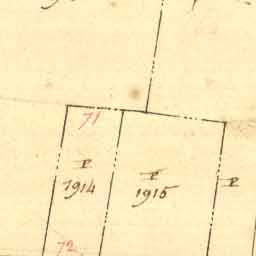 71
P
1914
P
1915
P
72